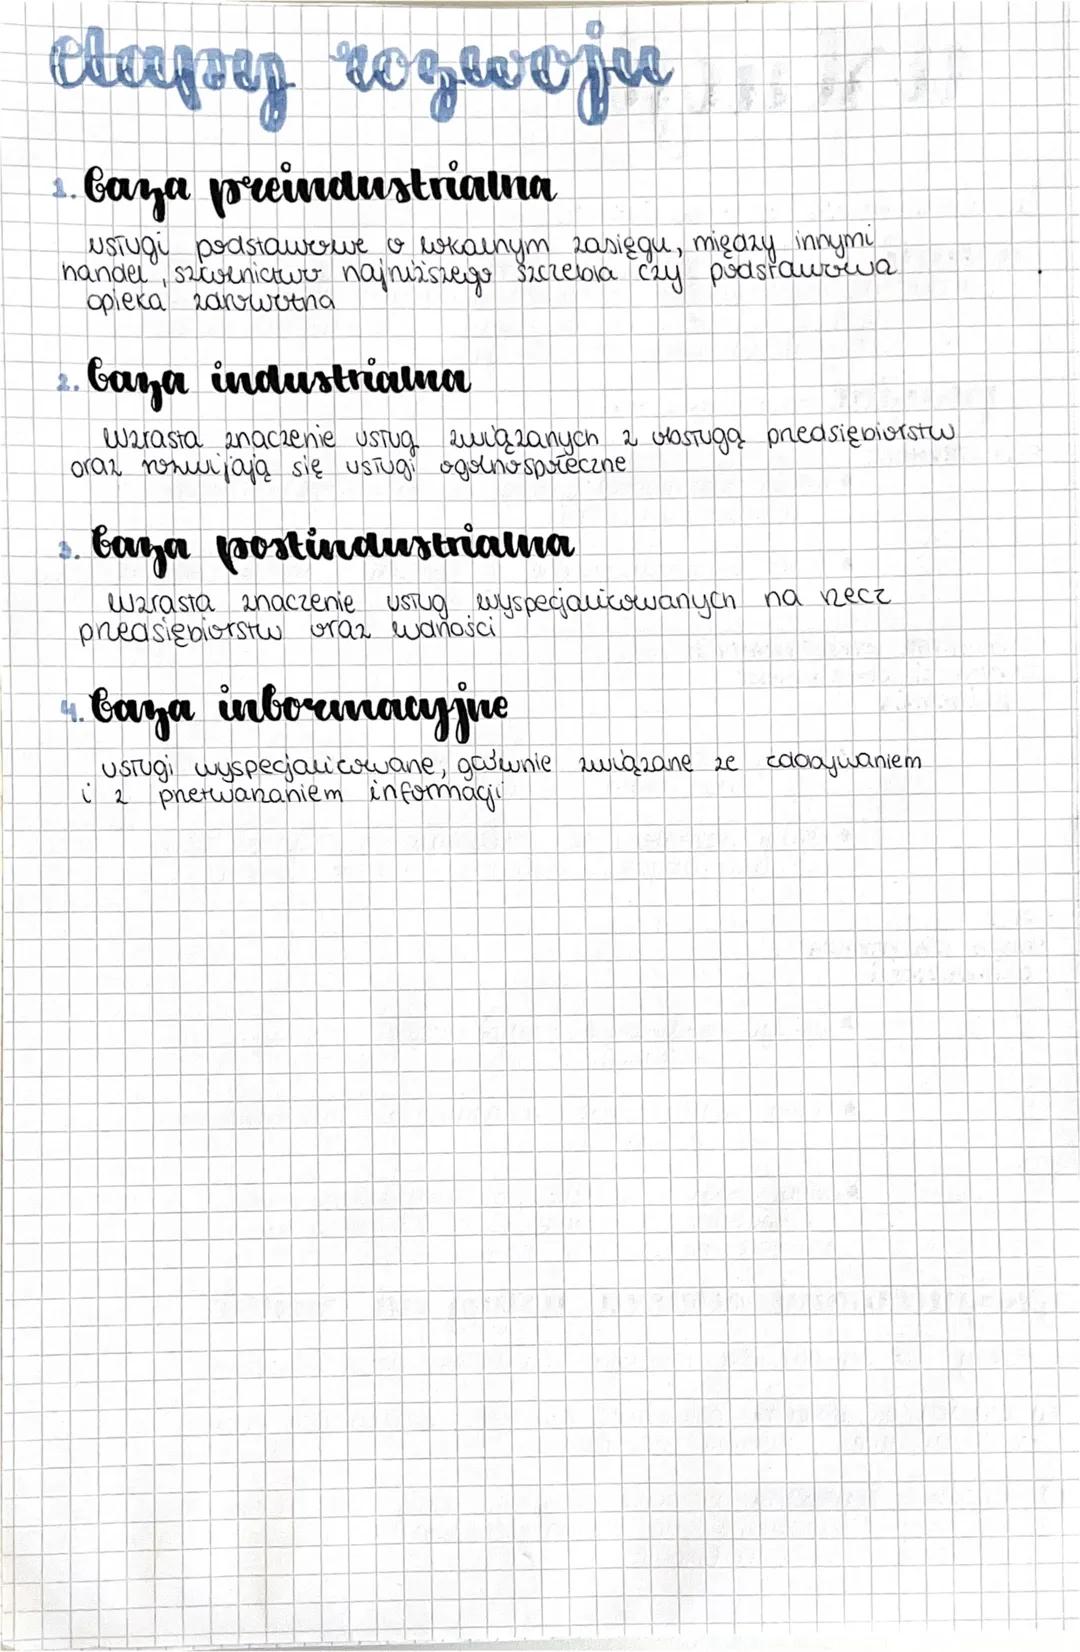 etapy rozwoju
1. faza preindustrialna
usługi podstawowe o lokalnym zasięgu, między innymi
handel, szkolnictwo najniższego szczebla czy podstawowa
opieka zdrowotna
2. faza industrialna
wzrasta znaczenie usług związanych z obsługą przedsiębiorstw
oraz rozwijają się usługi ogólnospołeczne
3. faza postindustrialna
wzrasta znaczenie usług wyspecjalizowanych na rzecz
przedsiębiorstw oraz ludności
4. faza informacyjne
usługi wyspecjalizowane, głównie związane ze zdobywaniem
i z przetwarzaniem informacji